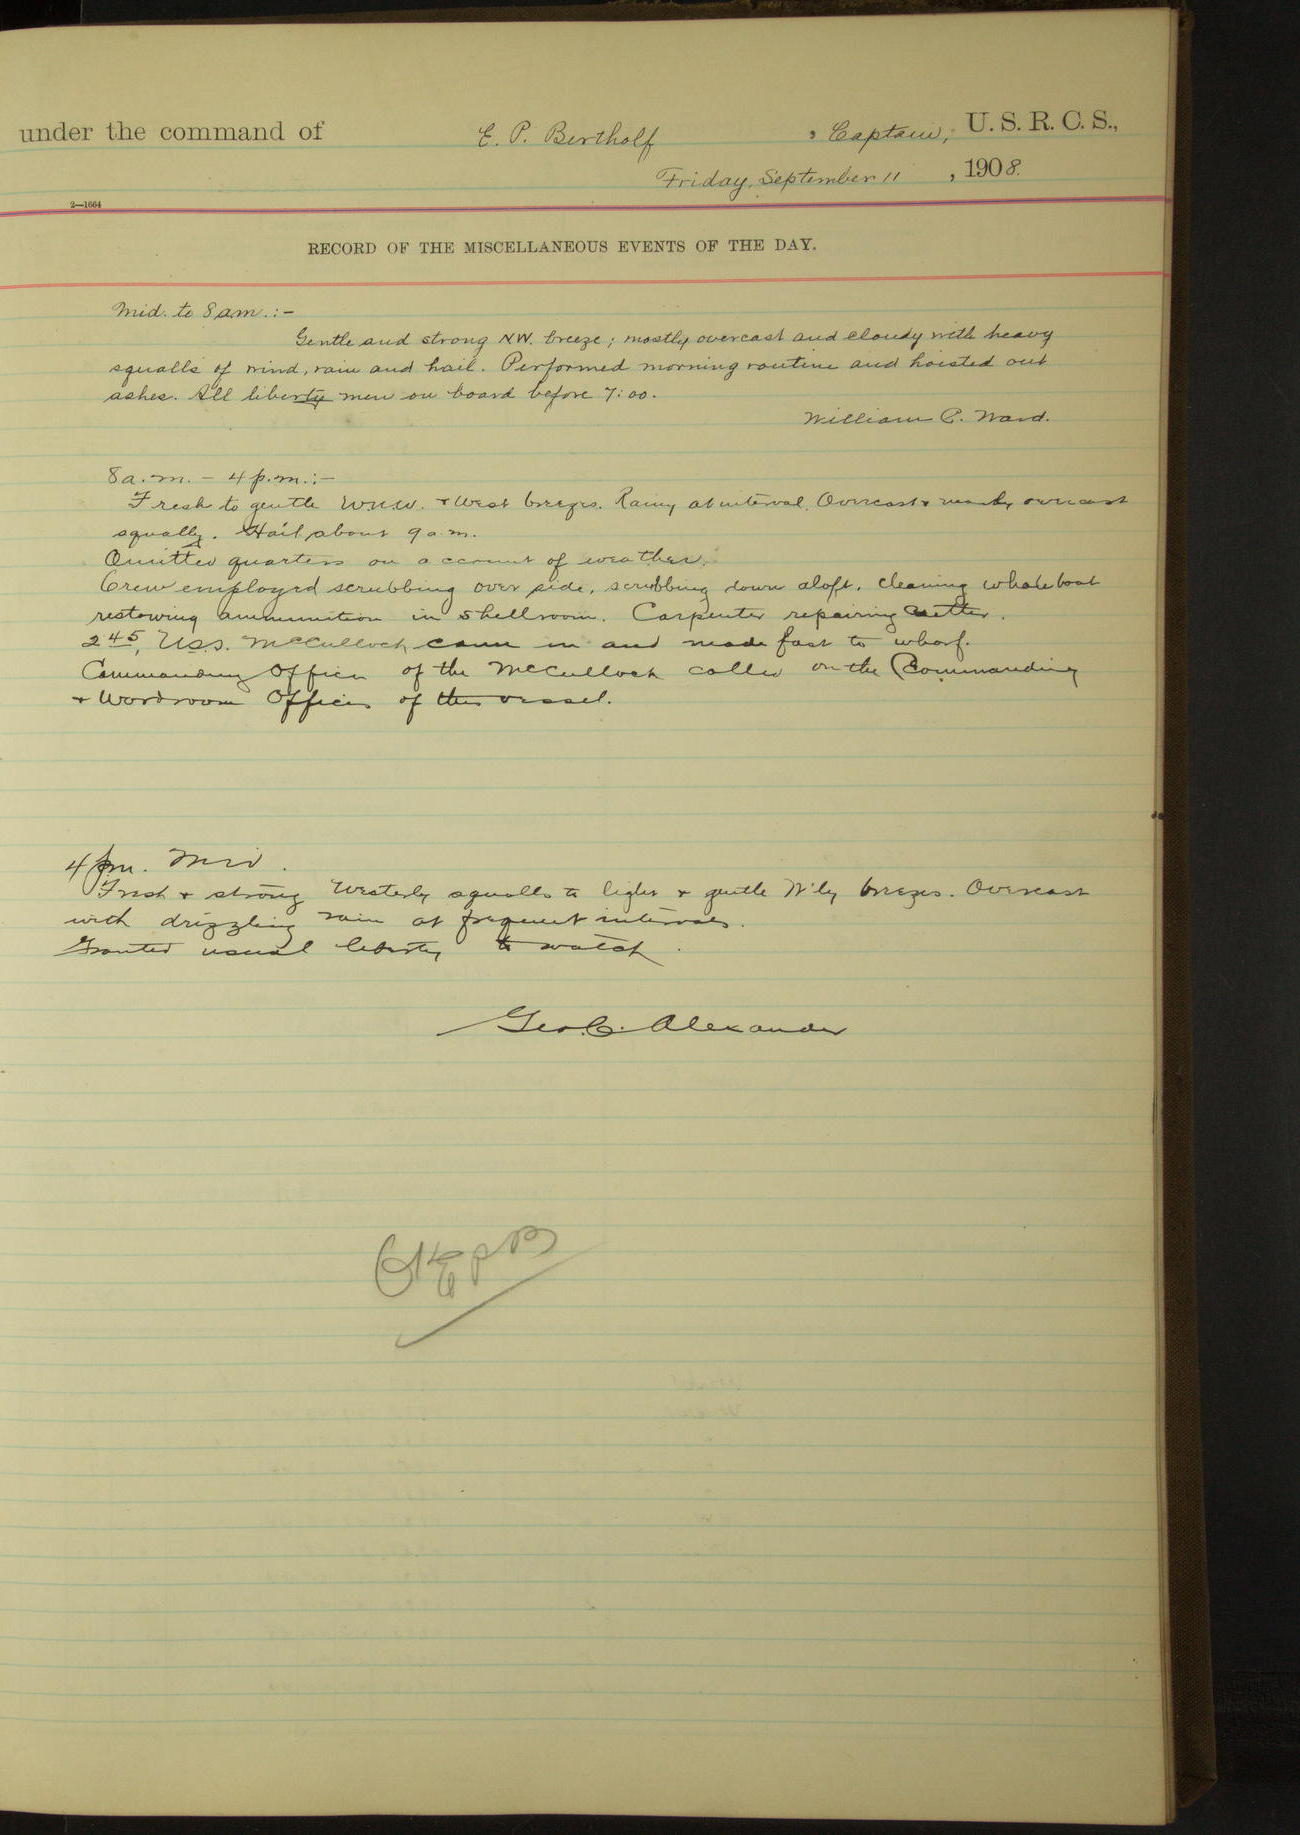 under the command of E. P. Bertholf, Captain, U. S. R. C. S.,
Friday, September 11, 1908.
2—1664
RECORD OF THE MISCELLANEOUS EVENTS OF THE DAY.
Mid. to 8 am.:-
Gentle and strong NW. breeze; mostly overcast and cloudy with heavy
squalls of wind, rain and hail. Performed morning routine and hoisted out
ashes. All liberty men on board before 7:00.
William P. Ward.
8 a.m. - 4 p.m.:-
Fresh to gentle WNW. + West breezes. Rainy at interval. Overcast + overcast
squally. Hail about 9 a.m.
Omitted quarters on account of weather.
Crew employed scrubbing over side, scrubbing down aloft, cleaning whaleboat
restowing ammunition in shellroom. Carpenter repairing cutter.
2 45, U.S.S. McCulloch came in and made fast to wharf.
Commanding Officer of the McCulloch called on the Commanding
+ Wardroom Officers of this vessel.
4 pm. Mid.
Fresh + strong Westerly squalls to light + gentle W'ly breezes. Overcast
with drizzling rain at frequent intervals.
Granted usual liberty to watch.
Geo. C. Alexander
OK EPB